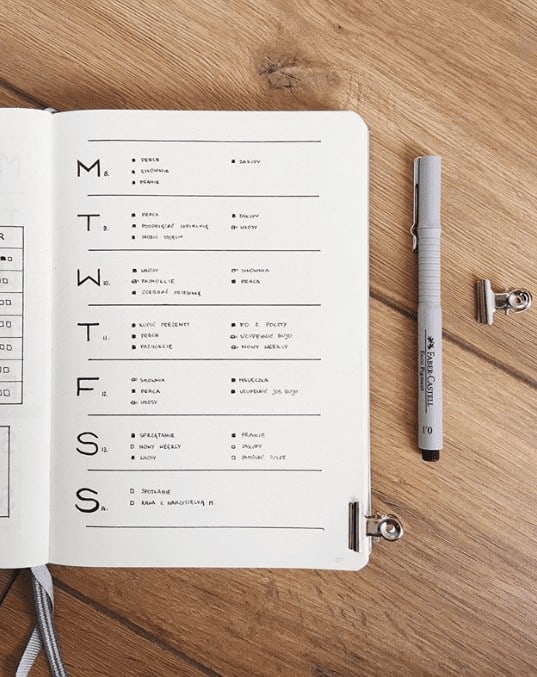 R
M 8.
PRACA
SIŁOWNIA
PRANIE
ZAKUPY
T 9.
PRACA
ZROBIĆ ZDJĘCIA
ZAKUPY
WŁOSY
W 10.
WŁOSY
PAZNOKCIE
SIŁOWNIA
PRACA
T 11.
KUPIĆ PREZENTY
PRACA
PAZNOKCIE
PO Z POCZTY
UZUPEŁNIĆ BUJO
NOWY WEEKLY
F 12.
SIŁOWNIA
PRACA
WŁOSY
MASECZKA
UZUPEŁNIĆ BUJO
S 13.
SPRZĄTANIE
NOWY WEEKLY
WŁOSY
PRANIE
ZAKUPY
S 14.
SPOTKANIE
KAWA Z M.
FABER-CASTELL
0.1